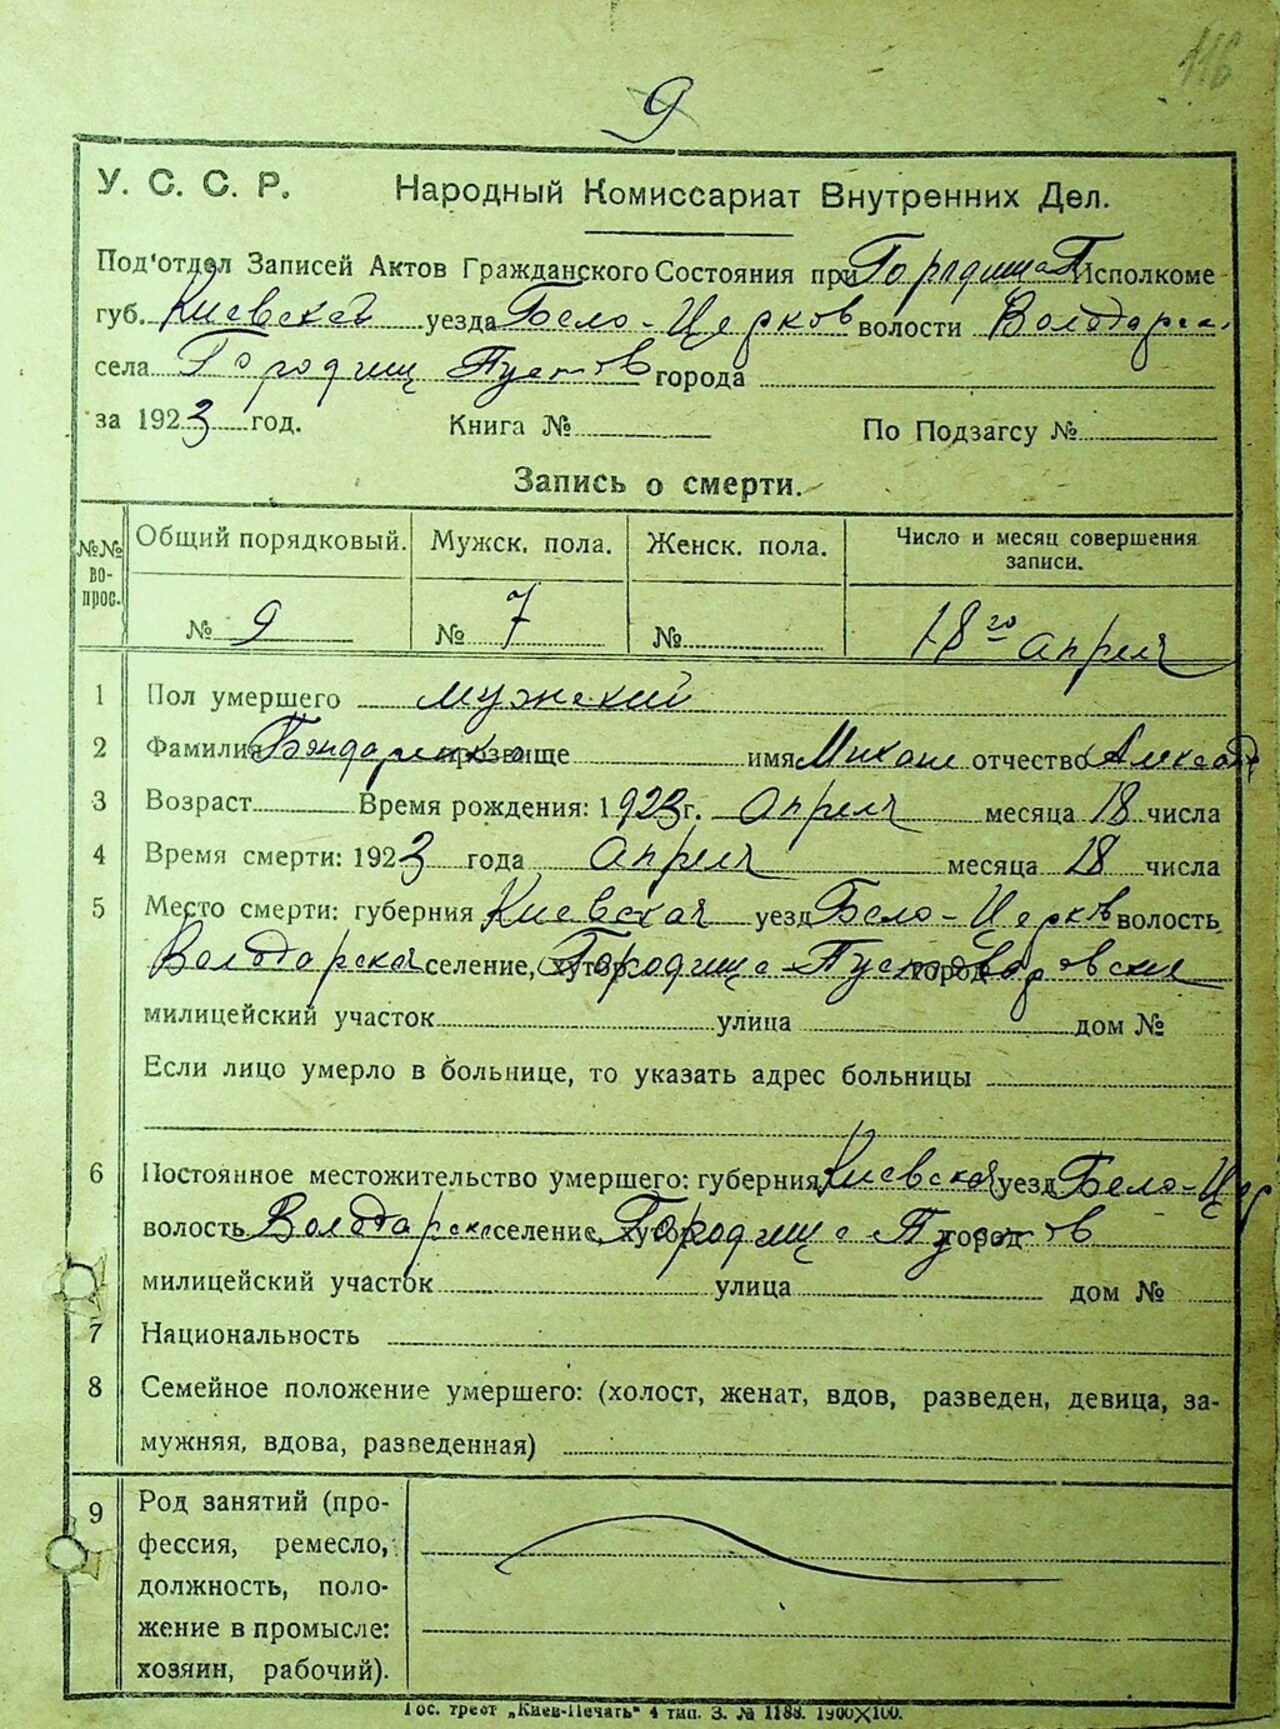 116
9
У. С. С. Р. Народный Комиссариат Внутренних Дел.
Под'отдел Записей Актов Гражданского Состояния при Городищ П Исполкоме
губ. Киевской уезда Бело-Церков волости Володарск.
села Городищ Пустов города
за 1923 год. Книга № По Подзагсу №
Запись о смерти.
№№ вопрос. Общий порядковый. Мужск. пола. Женск. пола. Число и месяц совершения
записи.
№ 9 № 7 № 18го апреля
1 Пол умершего мужский
2 Фамилия Бондаренко прозвище имя Михаил отчество Александ
3 Возраст Время рождения: 1923 г. апреля месяца 18 числа
4 Время смерти: 1923 года апреля месяца 18 числа
5 Место смерти: губерния Киевская уезд Бело-Церков волость
Володарская селение, хутор Городище-Пустоваровская город
милицейский участок улица дом №
Если лицо умерло в больнице, то указать адрес больницы
6 Постоянное местожительство умершего: губерния Киевская уезд Бело-Цер
волость Володарска селение, хутор Городище Пустов город
милицейский участок улица дом №
7 Национальность
8 Семейное положение умершего: (холост, женат, вдов, разведен, девица, за-
мужняя, вдова, разведенная)
9 Род занятий (про-
фессия, ремесло,
должность, поло-
жение в промысле:
хозяин, рабочий).
Гос. трест „Киев-Печать" 4 тип. З. № 1188. 1900X100.